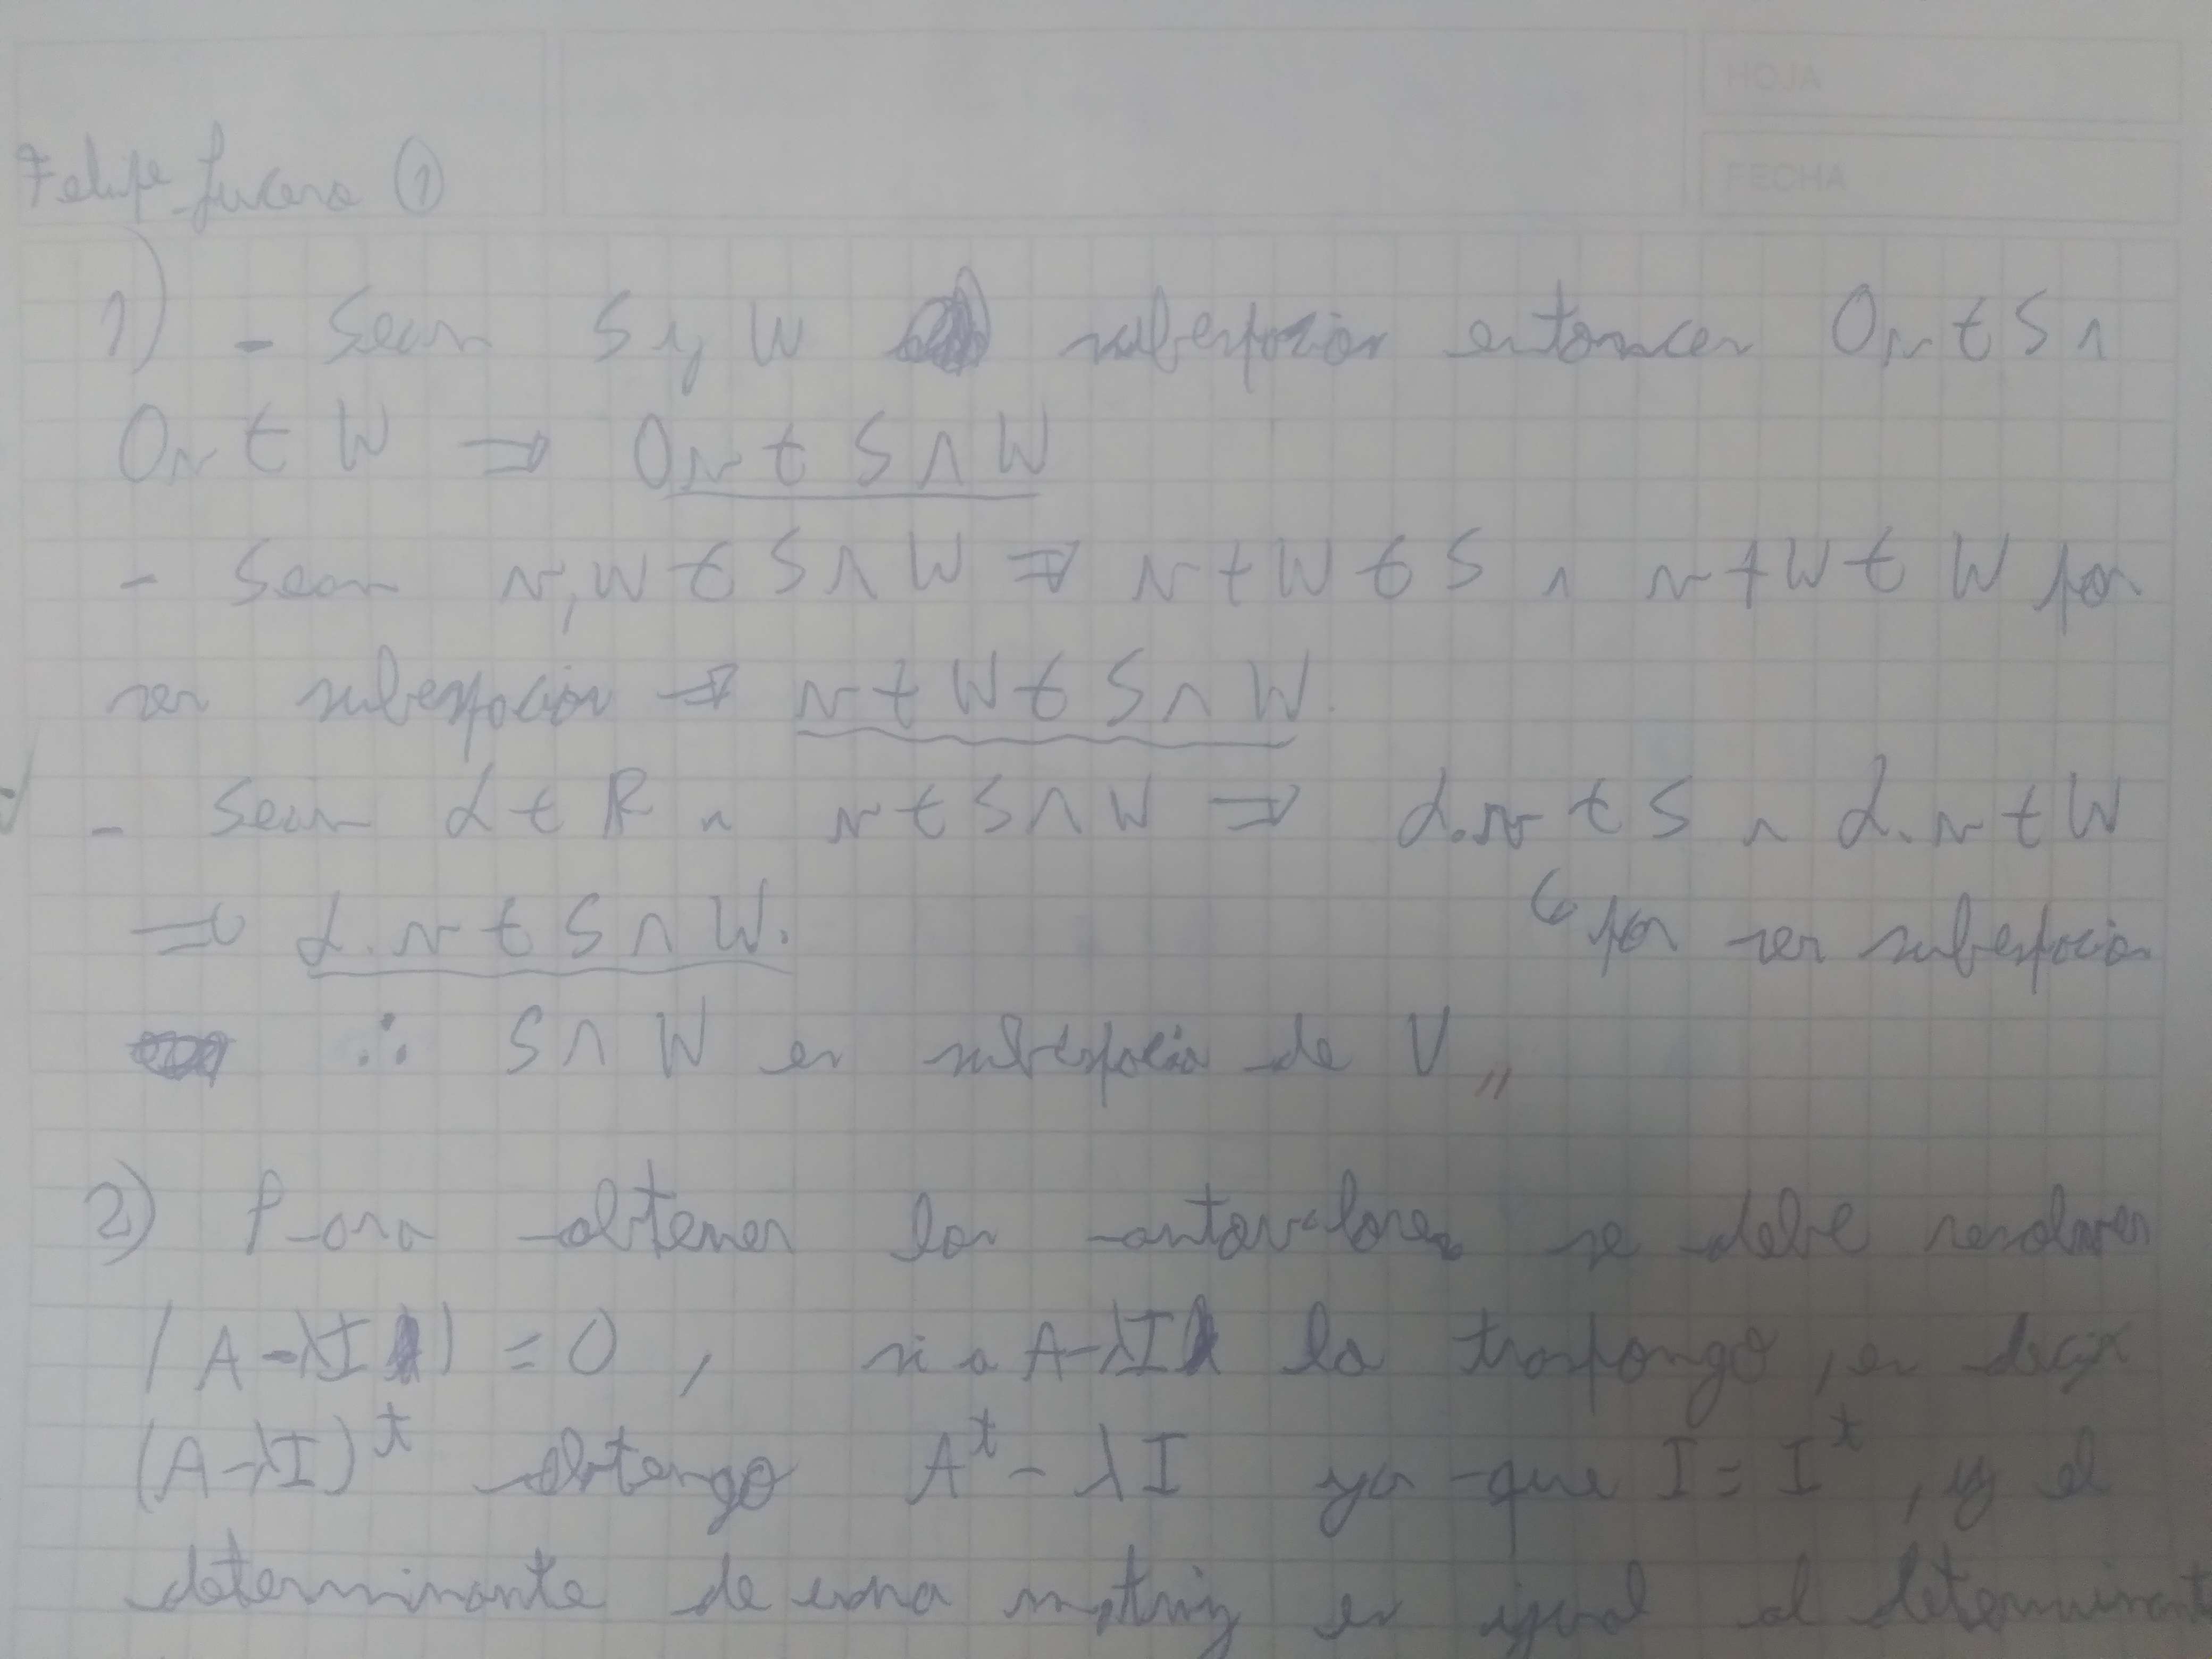 HOJA
FECHA
Felipe Lucero ①
1) - Sean S y W subespacios entonces 0v ∈ S ∧
0v ∈ W ⇒ 0v ∈ S ∩ W
- Sean v, w ∈ S ∩ W ⇒ v + w ∈ S ∧ v + w ∈ W por
ser subespacios ⇒ v + w ∈ S ∩ W.
- Sean α ∈ R ∧ v ∈ S ∩ W ⇒ α.v ∈ S ∧ α.v ∈ W
⇒ α.v ∈ S ∩ W. ↳ por ser subespacios
∴ S ∩ W es subespacio de V //
2) Para obtener los autovalores se debe resolver
|A - λI| = 0, si a A - λI la traspongo, es decir
(A - λI)^t obtengo A^t - λI ya que I = I^t, y el
determinante de una matriz es igual al determinante